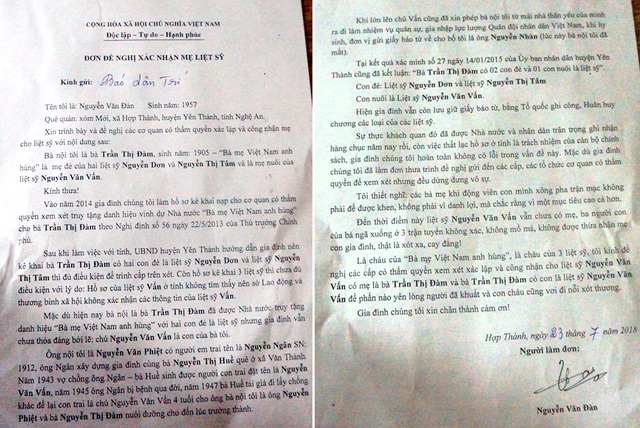 CỘNG HÒA XÃ HỘI CHỦ NGHĨA VIỆT NAM
Độc lập - Tự do - Hạnh phúc
ĐƠN ĐỀ NGHỊ XÁC NHẬN MẸ LIỆT SỸ
Kính gửi: Báo dân Trí
Tên tôi là: Nguyễn Văn Đàn Sinh năm: 1957
Quê quán: xóm Mới, xã Hợp Thành, huyện Yên Thành, tỉnh Nghệ An.
Xin trình bày và đề nghị các cơ quan có thẩm quyền xác lập và công nhận mẹ
cho liệt sỹ với nội dung sau:
Bà nội tôi là bà Trần Thị Đàm, sinh năm: 1905 – "Bà mẹ Việt Nam anh
hùng" là mẹ đẻ của hai liệt sỹ Nguyễn Dơn và Nguyễn Thị Tâm và là mẹ nuôi của
liệt sỹ Nguyễn Văn Vấn.
Kính thưa!
Vào năm 2014 gia đình chúng tôi làm hồ sơ kê khai nạp cho cơ quan có thẩm
quyền xem xét truy tặng danh hiệu vinh dự Nhà nước "Bà mẹ Việt Nam anh hùng"
cho bà Trần Thị Đàm theo Nghị định số 56 ngày 22/5/2013 của Thủ tướng Chính
phủ.
Sau khi làm việc với tỉnh, UBND huyện Yên Thành hướng dẫn gia đình nên
kê khai bà Trần Thị Đàm có hai con đẻ là liệt sỹ Nguyễn Dơn và liệt sỹ Nguyễn
Thị Tâm thì đủ điều kiện đề trình cấp trên xét. Còn hồ sơ kê khai 3 liệt sỹ thì chưa đủ
điều kiện với lý do: Hồ sơ của liệt sỹ Vấn ở tỉnh không tìm thấy nên sở Lao động và
thương binh xã hội không xác nhận các thông tin của liệt sỹ Vấn.
Mặc dù hiện nay bà nội là bà Trần Thị Đàm đã được Nhà nước truy tặng
danh hiệu "Bà mẹ Việt Nam anh hùng" với hai con đẻ là liệt sỹ nhưng gia đình vẫn
chưa thỏa đáng bởi lẽ: chú Nguyễn Văn Vấn là con của bà tôi.
Ông nội tôi là Nguyễn Văn Phiệt có người em trai tên là Nguyễn Ngân SN:
1912, ông Ngân xây dựng gia đình cùng bà Nguyễn Thị Huề quê ở xã Văn Thành.
Năm 1943 vợ chồng ông Ngân – bà Huề sinh được người con trai đặt tên là Nguyễn
Văn Vấn, năm 1945 ông Ngân bị bệnh qua đời, năm 1947 bà Huề tái giá đi lấy chồng
khác để lại con trai là chú Nguyễn Văn Vấn 4 tuổi cho ông bà nội tôi là ông Nguyễn
Phiệt và bà Nguyễn Thị Đàm nuôi dưỡng cho đến lúc trưởng thành.
Khi lớn lên chú Vấn cũng đã xin phép bà nội tôi từ mái nhà thân yêu của mình
ra đi làm nhiệm vụ quân sự, gia nhập lực lượng Quân đội nhân dân Việt Nam, khi hy
sinh, đơn vị gửi giấy báo tử về cho bố tôi là ông Nguyễn Nhàn (lúc này bà nội tôi đã
mất).
Tại kết quả xác minh số 27 ngày 14/01/2015 của Ủy ban nhân dân huyện Yên
Thành cũng đã kết luận: "Bà Trần Thị Đàm có 02 con đẻ và 01 con nuôi là liệt sỹ".
Con đẻ: Liệt sỹ Nguyễn Dơn và liệt sỹ Nguyễn Thị Tâm
Con nuôi là Liệt sỹ Nguyễn Văn Vấn.
Hiện gia đình vẫn còn lưu giữ giấy báo tử, bằng Tổ quốc ghi công, Huân huy
chương các loại của các liệt sỹ.
Sự thực khách quan đó đã được Nhà nước và nhân dân trân trọng ghi nhận
hàng chục năm nay rồi, còn việc thất lạc hồ sơ ở tỉnh là trách nhiệm của cán bộ chính
sách, gia đình chúng tôi hoàn toàn không có lỗi trong vấn đề này. Mặc dù gia đình
chúng tôi đã làm đơn thưa trình đề nghị gửi đến các cấp, các tổ chức cơ quan có thẩm
quyền để xem xét nhưng đều dửng dưng vô sự.
Tôi thiết nghĩ: các bà mẹ khi động viên con mình xông pha trận mạc không
phải để được khen, không phải vì danh lợi, mà chắc rằng vì một mục tiêu cao cả hơn.
Đến thời điểm này liệt sỹ Nguyễn Văn Vấn vẫn chưa có mẹ, ba người con
của bà ngã xuống ở 3 trận tuyến không xác, không mồ mả, không được thừa nhận mẹ
con gia đình, thật là xót xa, cay đắng!
Là cháu của "Bà mẹ Việt Nam anh hùng", là cháu của 3 liệt sỹ, tôi kính đề
nghị các cấp có thẩm quyền xem xét xác lập và công nhận cho liệt sỹ Nguyễn Văn
Vấn có mẹ là bà Trần Thị Đàm và bà Trần Thị Đàm có con là liệt sỹ Nguyễn Văn
Vấn để phần nào yên lòng người đã khuất và con cháu cũng vơi đi nỗi xót thương.
Gia đình chúng tôi xin chân thành cảm ơn!
Hợp Thành, ngày 23 tháng 7 năm 2018
Người làm đơn:
Nguyễn Văn Đàn